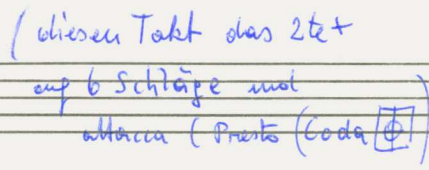 (diesen Takt das 2te+
auf 6 Schläge und
attacca (Presto (Coda 𝄌)